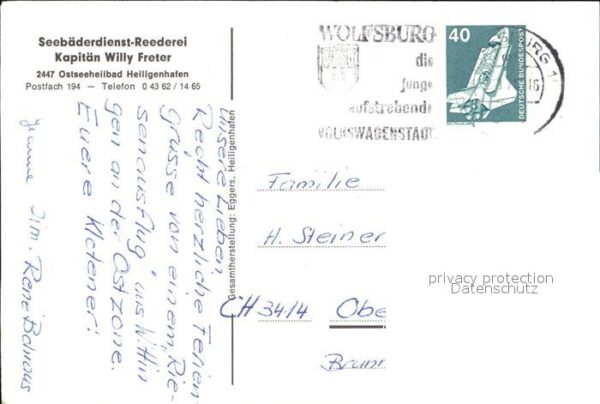 Seebäderdienst-Reederei
Kapitän Willy Freter
2447 Ostseeheilbad Heiligenhafen
Postfach 194 — Telefon 0 43 62 / 14 65
Unsere Lieben
Recht herzliche Ferien-
grüsse von einem „Rie-
senausflug" aus
gen an der Ostzone.
Euere
Jeanne Jim. René
Gesamtherstellung: Eggers, Heiligenhafen
WOLFSBURG
die
junge
aufstrebende
VOLKSWAGENSTADT
40
DEUTSCHE BUNDESPOST
BURG 1
Familie
H. Steiner
CH 3414 Obe
Brunn
privacy protection
Datenschutz